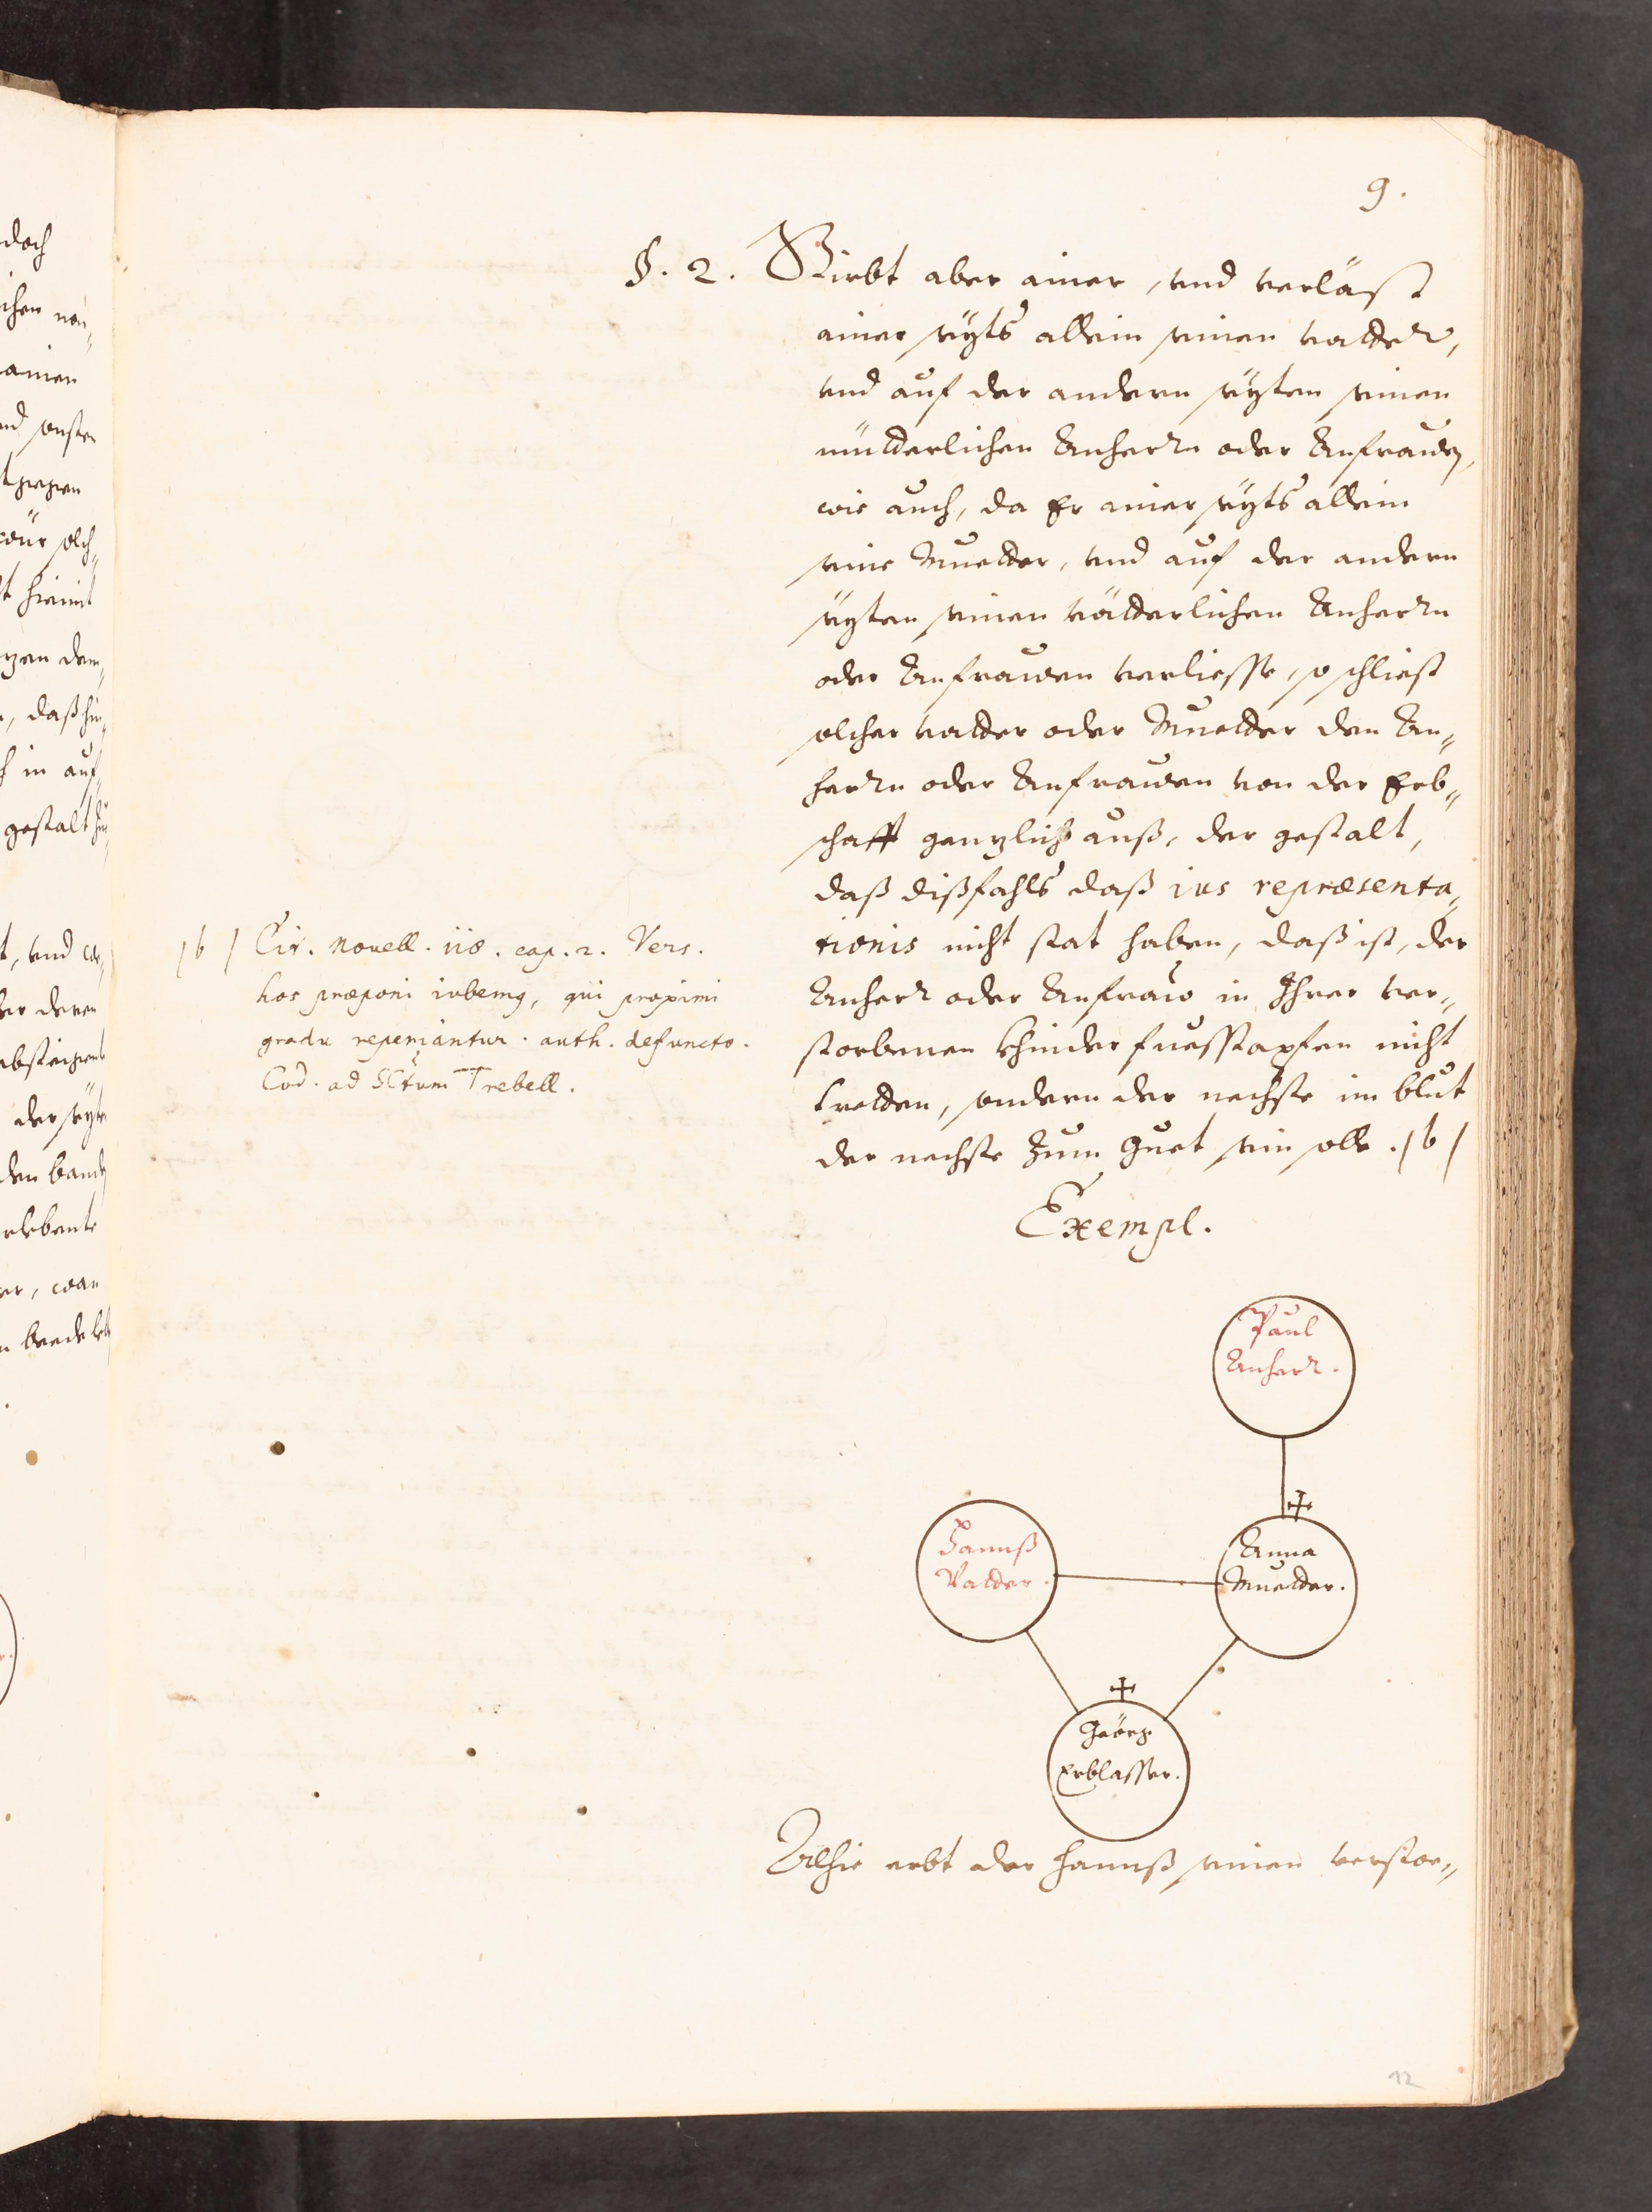 9.
§. 2. Stirbt aber ainer, vnd verläst
ainer seyts allein seinen vatter,
vnd auf der andern seyten seinen
mütterlichen Anherrn oder Anfrawen,
wie auch, da Er ainer seyts allein
seine Muetter, vnd auf der andern
seyten seinen vätterlichen Anherrn
oder Anfrawen verliesse, so schliest
solcher vatter oder Muetter den An„
herrn oder Anfrawen von der Erb„
schafft gentzlich auß, der gestalt,
daß dißfahls daß ius repræsenta„
tionis nicht stat haben, daß ist, der
Anherr oder Anfraw in Ihrer ver„
storbenen Khinder fuesstapfen nicht
tretten, sondern der nechste im blut
der nechste zum Guet sein solle. /b/
/b/ Cit. Novell. 118. cap. 2. Vers.
hos præponi iubemg, qui proximi
gradu reperiantur. auth. defuncto.
Cod. ad SCtum Trebell.
Exempl.
Paul
Anherr.
Hannß
Vatter.
Anna
Muetter.
Geörg
Erblasser.
Alhie erbt der Hannß seinen verstor„
12
doch
ainen
nd sonsten
solch„
t hiemit
daß hin„
h in auf„
gestalt
t, vnd
der seyten
den
er, wan